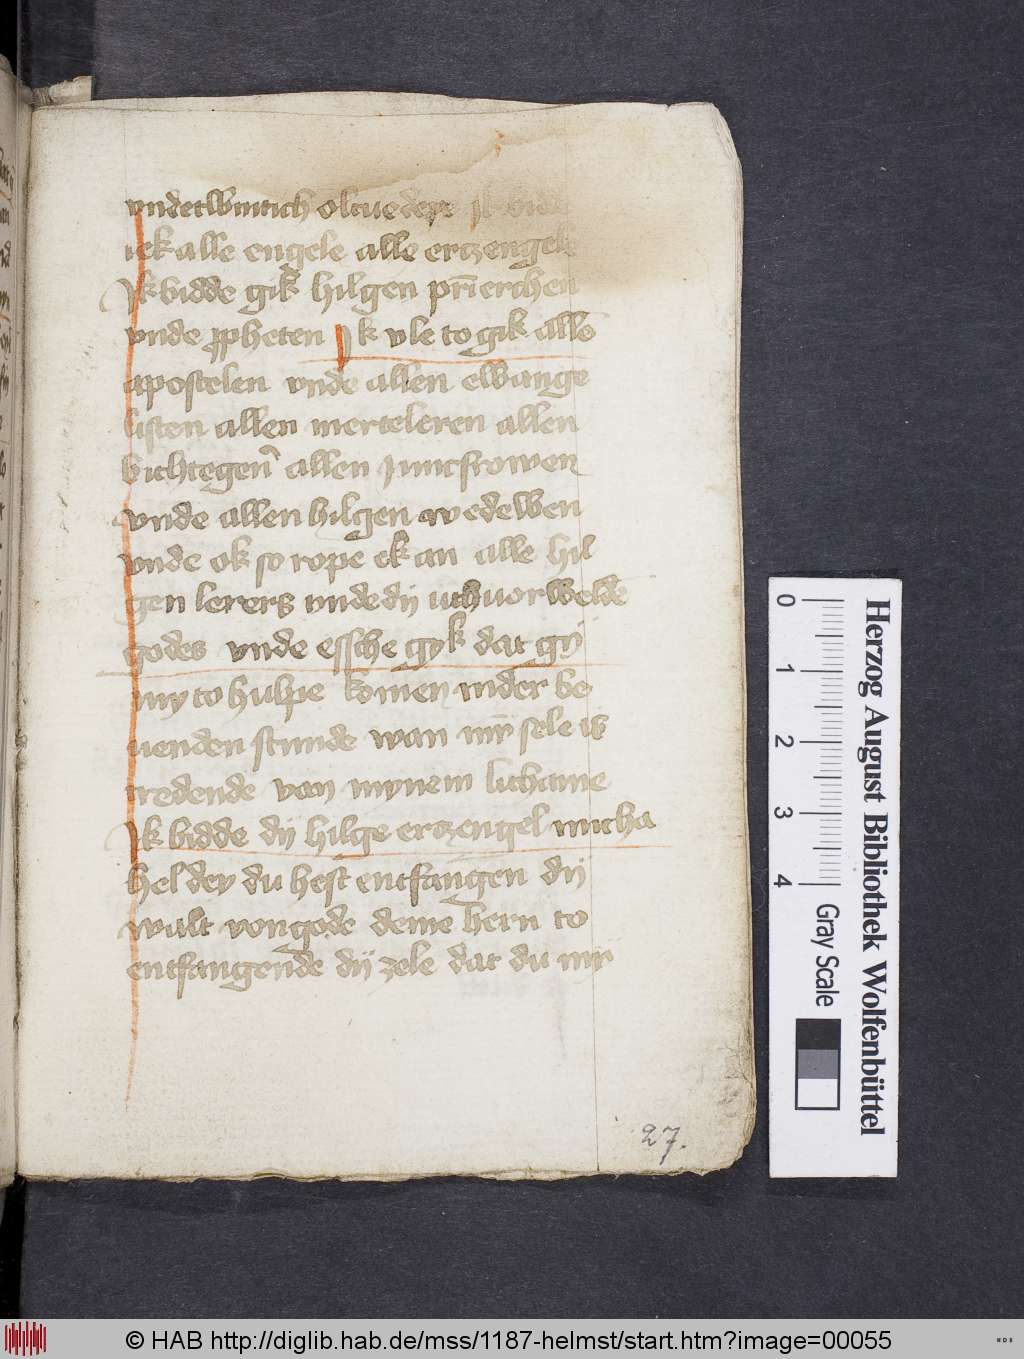 vnde twintich oltuedere Ik bidde
iek alle engele alle ertzengele
Ik bidde gik hilgen pr̄ierchen
vnde ꝓpheten Ik vle to gik allē
apostelen vnde allen ewange
listen allen merteleren allen
bichtegen̕ allen Juncfrowen
vnde allen hilgen wedewen
vnde ok so rope ek an alle hil
gen lerers unde dij uthuorwelde
godes vnde essche gyk dat gij
my to hulpe komen in der be
uenden stunde wan mȳ sele is
tredende van mynem lichame
Ik bidde dij hilge ertzengel micha
hel dey du hest entfangen dij
walt von gode deme hern to
entfangende dij zele dat du mȳ
27.
Herzog August Bibliothek Wolfenbüttel
0 1 2 3 4
Gray Scale
© HAB http://diglib.hab.de/mss/1187-helmst/start.htm?image=00055